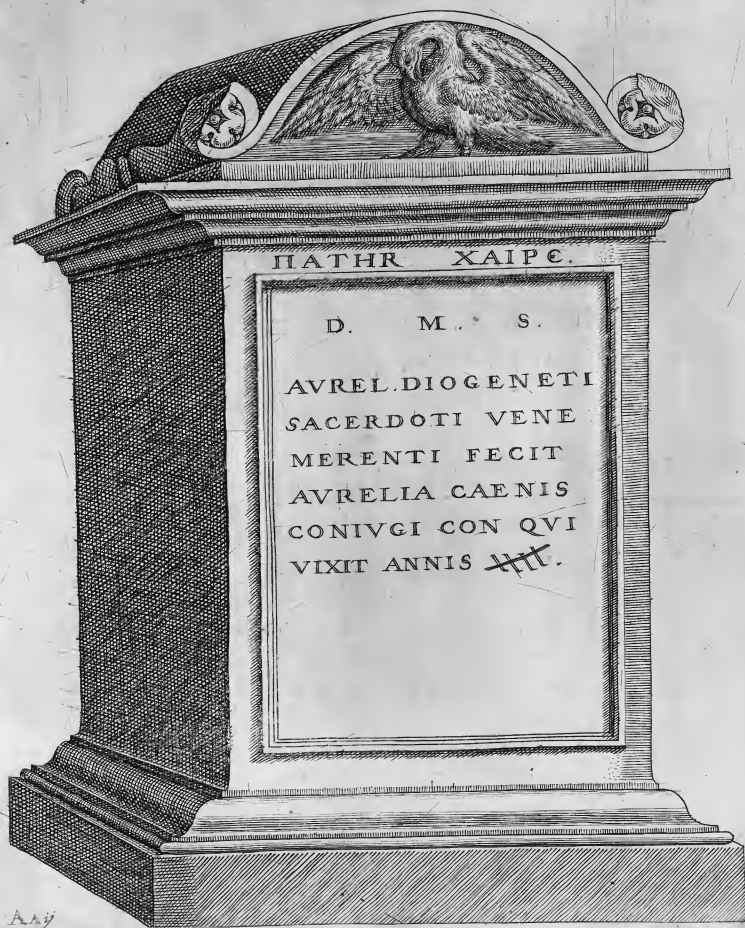 ΠΑΤΗR ΧΑΙΡЄ.
D. M. S.
AVREL. DIOGENETI
SACERDOTI VENE
MERENTI FECIT
AVRELIA CAENIS
CONIVGI CON QVI
VIXIT ANNIS
A aij